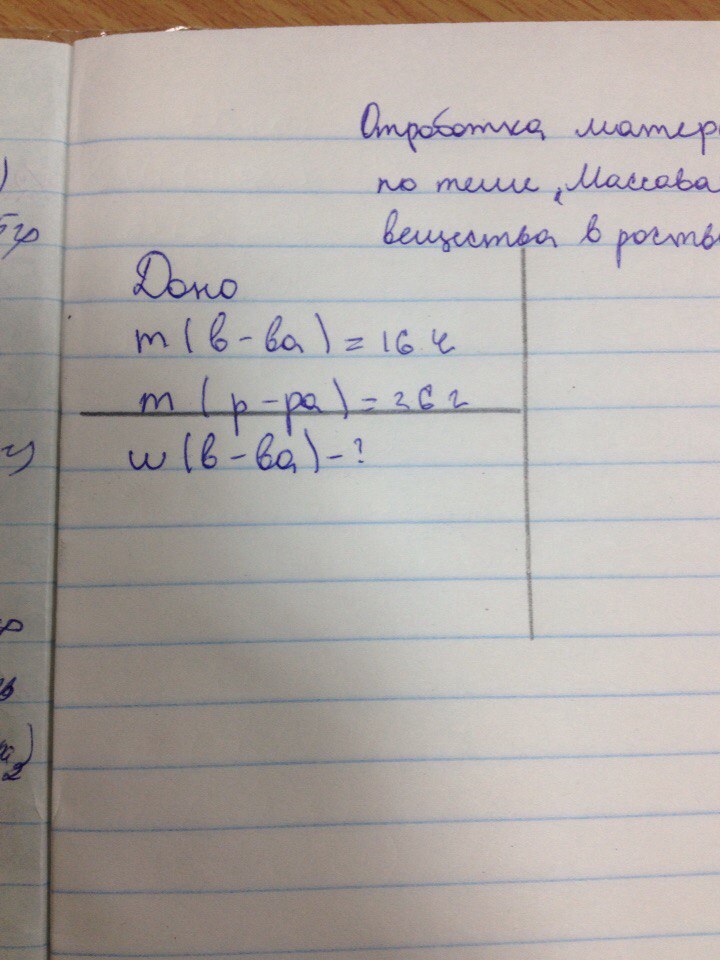 Отработка матер
по теме „Массова
вещества в раств
Дано
m (в-ва) = 16 г
m (р-ра) = 36 г
w (в-ва) - ?